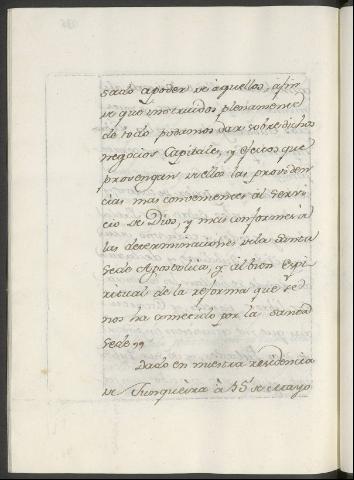 sado a poder de aquellos, afin
de que instruidos plenamente
de todo podamos dar sobre dichos
negocios Capitales, y efectos que
provengan de ellos las providen
cias mas convenientes al servi
cio de Dios, y mas conformes à
las determinaciones de la Santa
Sede Apostolica, y al bien Espi
ritual de la reforma que se
nos ha cometido por la Santa
Sede
Dado en nuestra residencia
de Junqueira à 15 de Mayo